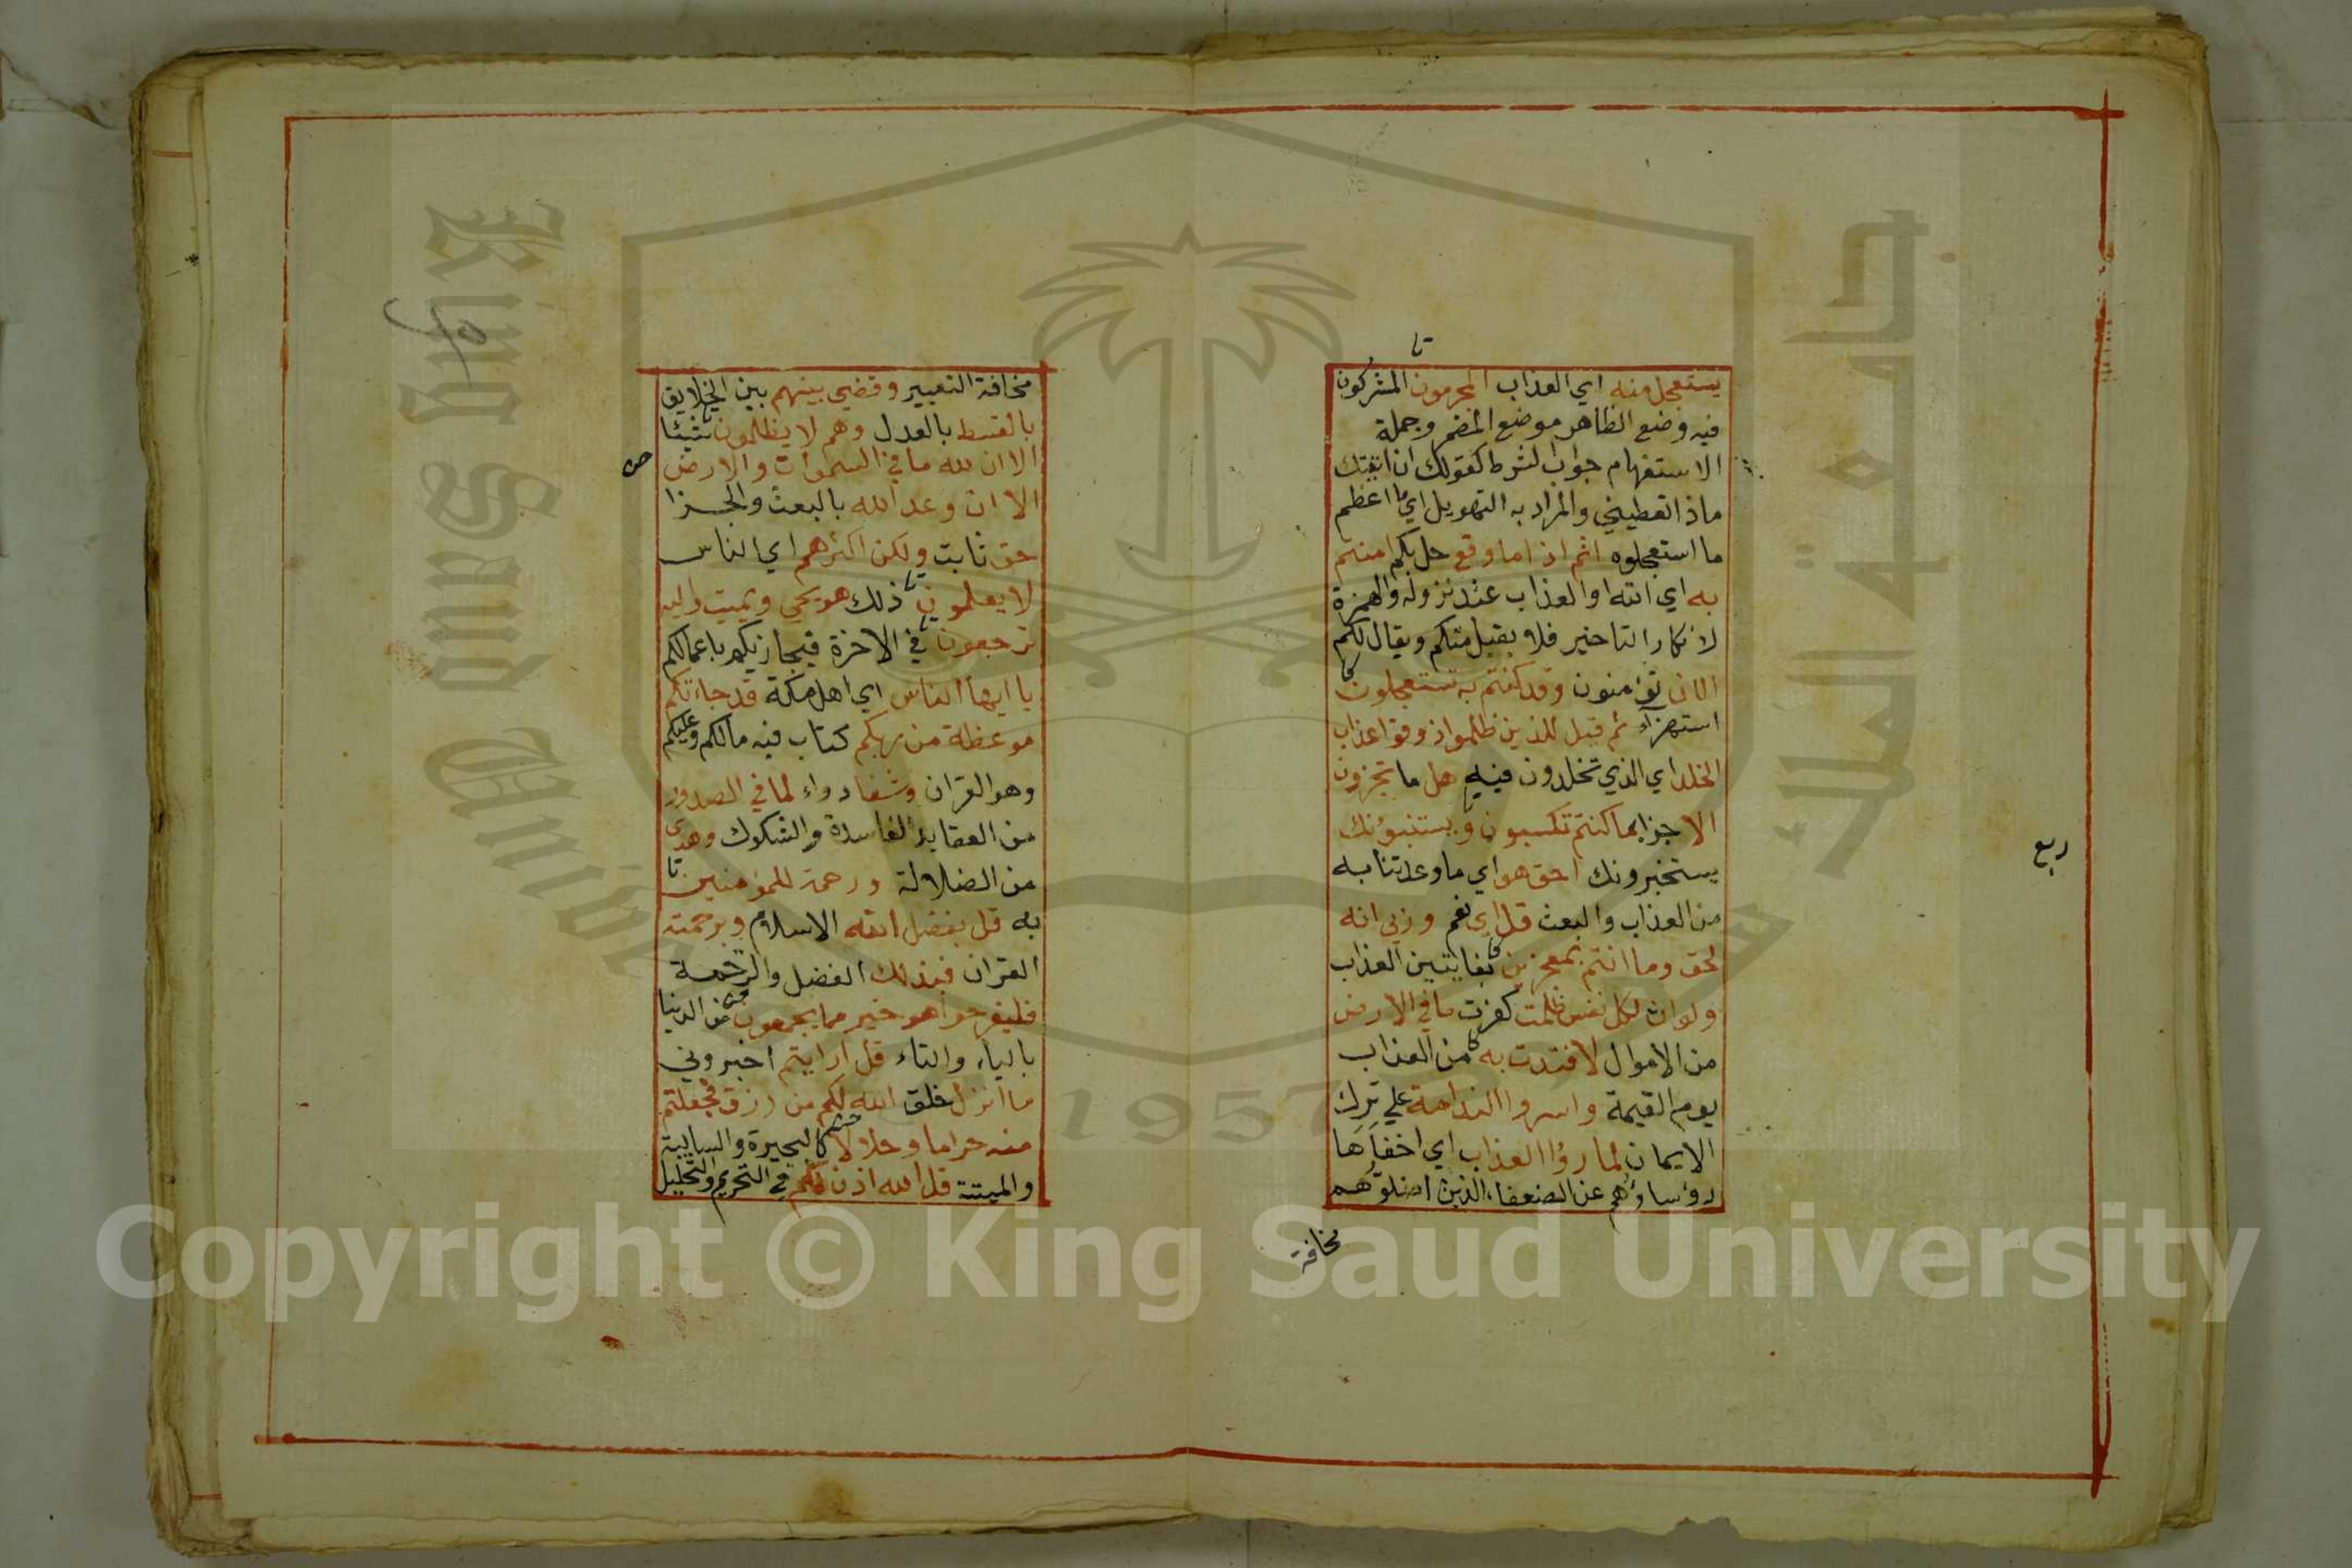 يستعجل منه اي العذاب المجرمون المشركون
فيه وضع الظاهر موضع المضمر وجملة
الاستفهام جواب الشرط كقولك ان اتيتك
ماذا تعطيني والمراد به التهويل اي ما اعظم
ما استعجلوه اثم اذا ما وقع حل بكم امنتم
به اي الله او العذاب عند نزوله والهمزة
لانكار التاخير فلا يقبل منكم ويقال لكم
الان تؤمنون وقد كنتم به تستعجلون
استهزاء ثم قيل للذين ظلموا ذوقوا عذاب
الخلد اي الذي تخلدون فيه هل ما تجزون
الا جزا بما كنتم تكسبون ويستنبؤنك
يستخبرونك احق هو اي ما وعدتنا به
من العذاب والبعث قل اي نعم وربي انه
لحق وما انتم بمعجزين بفايتين العذاب
ولو ان لكل نفس ظلمت كفرت ما في الارض
من الاموال لافتدت به من العذاب
يوم القيمة واسروا الندامة علي ترك
الايمان لما رؤا العذاب اي اخفاها
رؤساؤهم عن الضعفاء الذين اضلوهم
مخافة
ربع
مخافة التعيير وقضي بينهم بين الخلايق
بالقسط بالعدل وهم لا يظلمون شيئا
الا ان لله ما في السموات والارض
الا ان وعد الله بالبعث والجزا
حق ثابت ولكن اكثرهم اي الناس
لا يعلمون ذلك هو يحي ويميت واليه
ترجعون في الاخرة فيجازيكم باعمالكم
يا ايها الناس اي اهل مكة قد جاءتكم
موعظة من ربكم كتاب فيه مالكم وعليكم
وهو القران وشفا دواء لما في الصدور
من العقايد الفاسدة والشكوك وهدى
من الضلالة ورحمة للمؤمنين
به قل بفضل الله الاسلام وبرحمته
القران فبذلك الفضل والرحمة
فليفرحوا هو خير مما يجمعون من الدنيا
بالياء والتاء قل ارايتم اخبروني
ما انزل خلق الله لكم من رزق فجعلتم
منه حراما وحلالا كالبحيرة والسايبة
والميتة قل الله اذن لكم في التحريم والتحليل
King Saud Unive
جامعة الملك
1957
Copyright © King Saud University